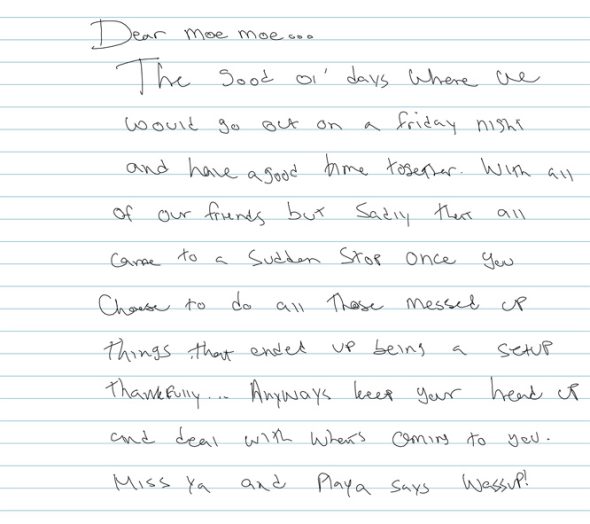 Dear moe moe...
The good ol' days where we
would go out on a friday night
and have a good time together. With all
of our friends but sadly that all
came to a sudden stop once you
Choose to do all those messed up
things that ended up being a setup
thankfully... Anyways keep your head up
and deal with what's coming to you.
Miss ya and Playa says Wassup!